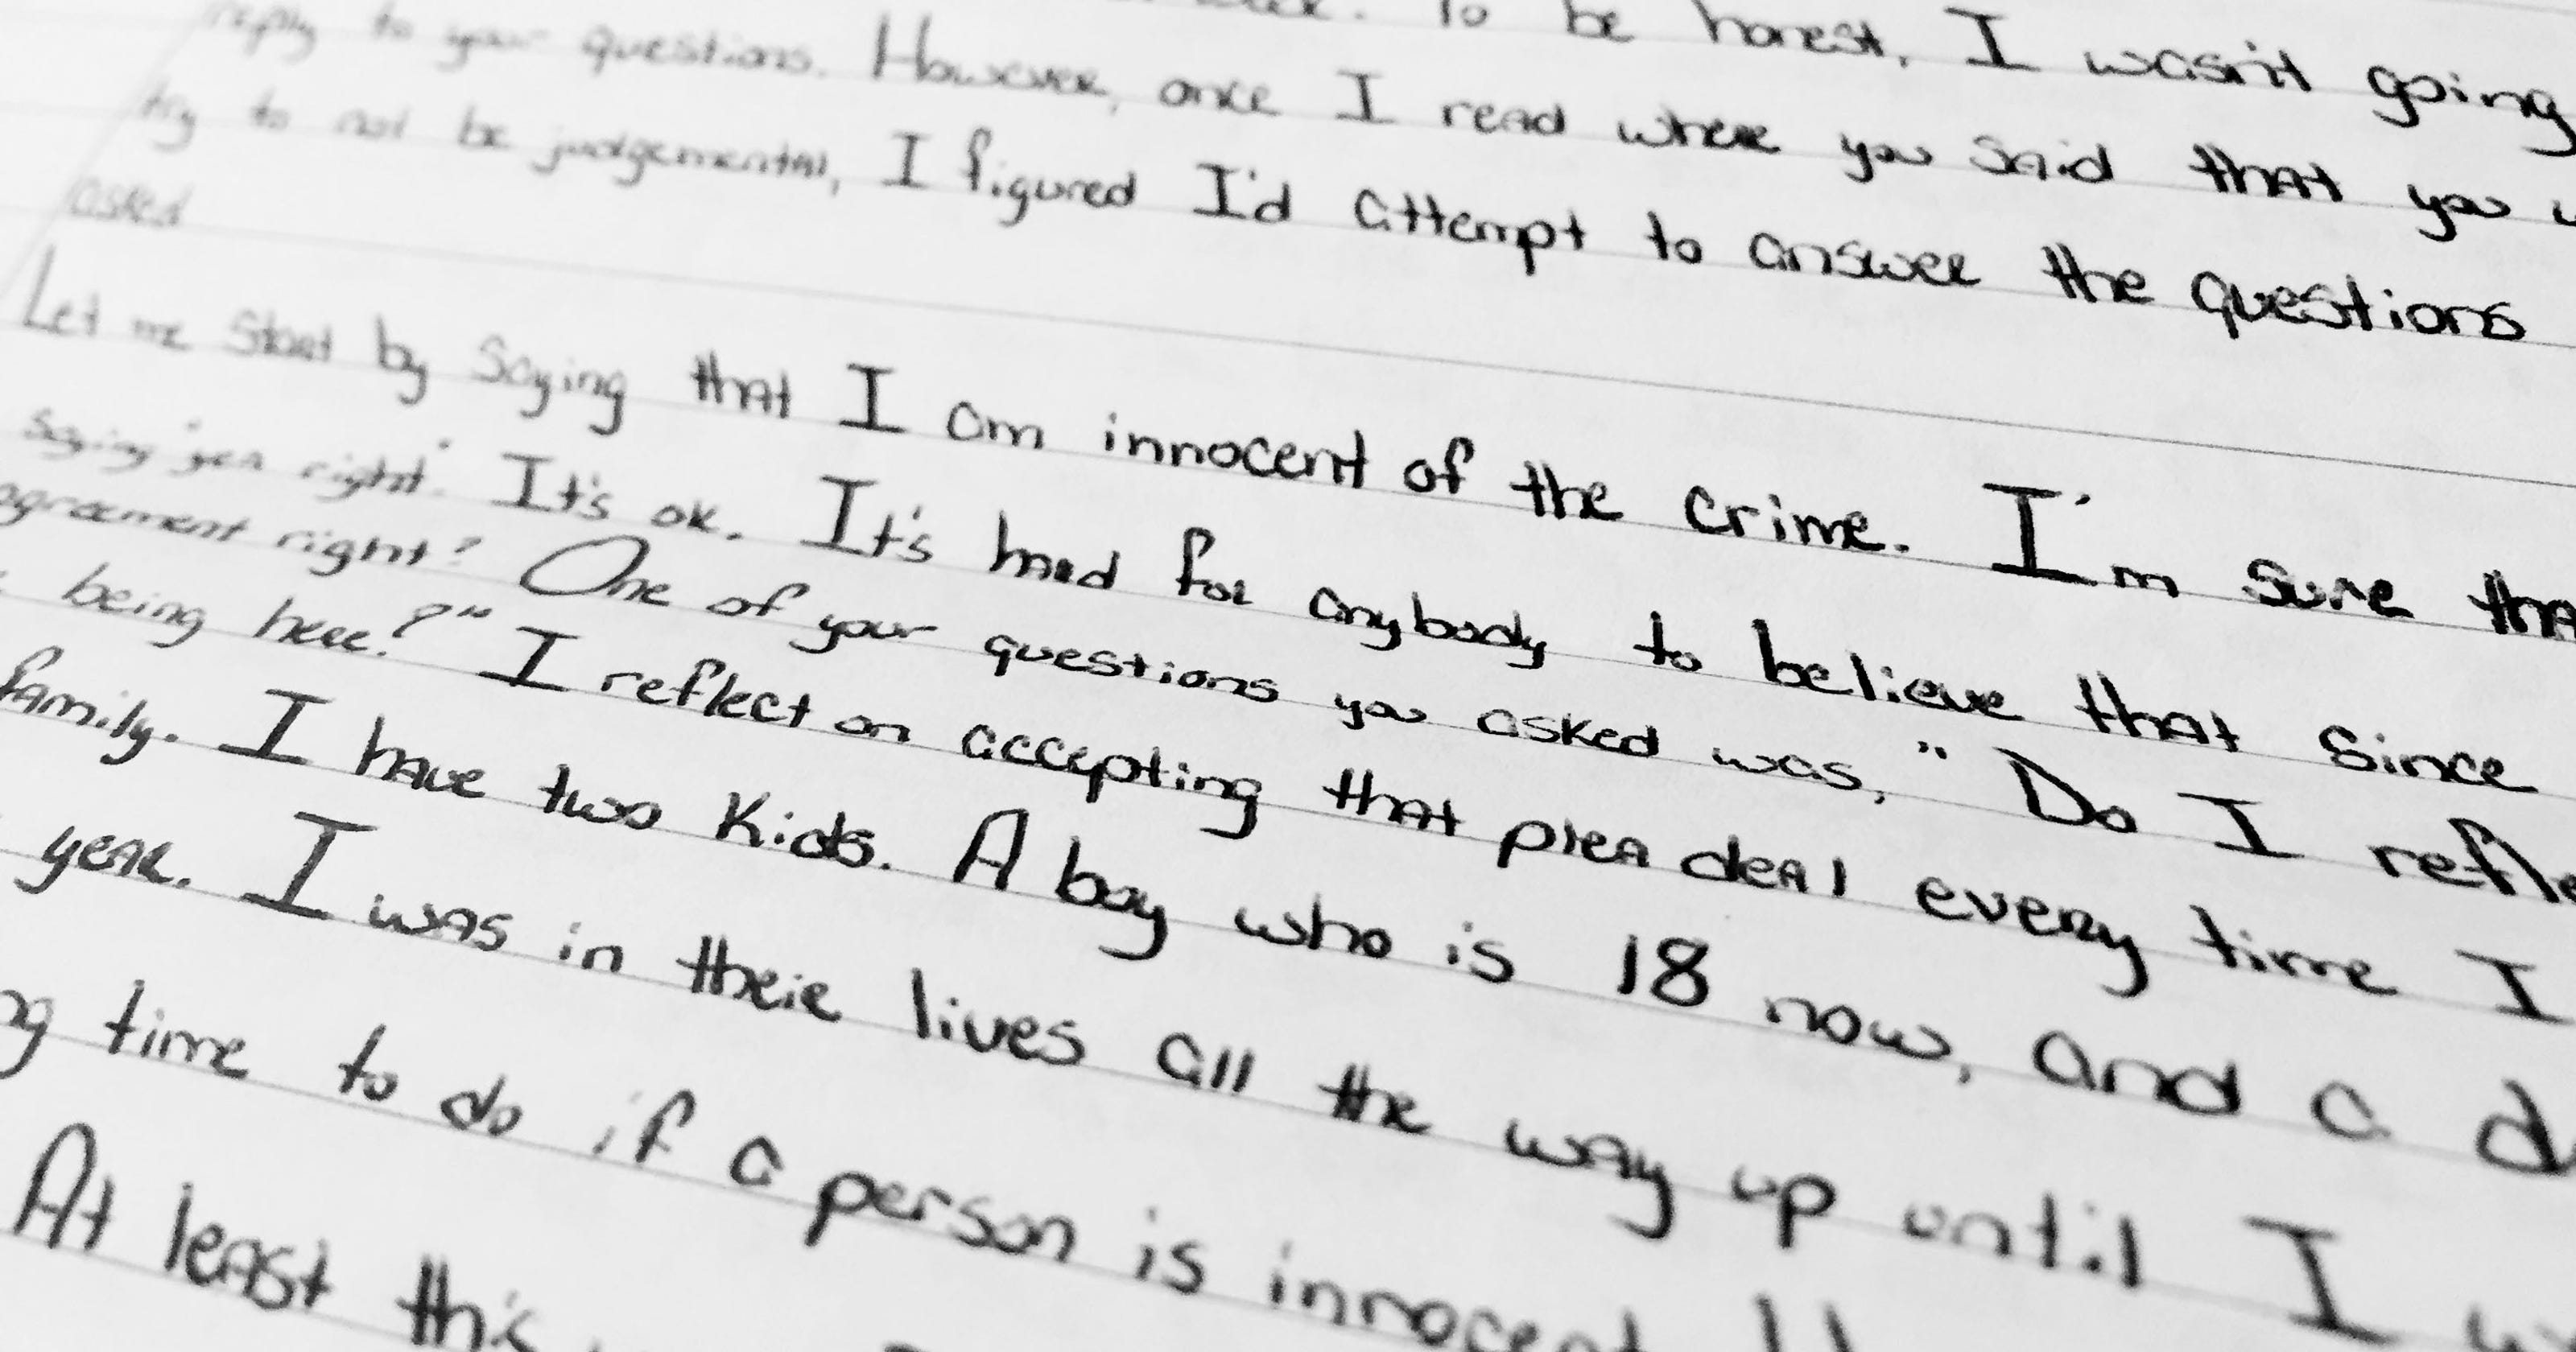 To be honest, I wasn't going
reply to your questions. However, once I read where you said that you
try to not be judgemental, I figured I'd attempt to answer the questions
asked
Let me start by saying that I am innocent of the crime. I'm sure tha
saying "yea right". It's ok. It's hard for anybody to believe that since
agreement right? One of your questions you asked was, "Do I refle
being here?" I reflect on accepting that plea deal every time I
family. I have two kids. A boy who is 18 now, and a d
year. I was in their lives all the way up until I
ng time to do if a person is innocent
At least this